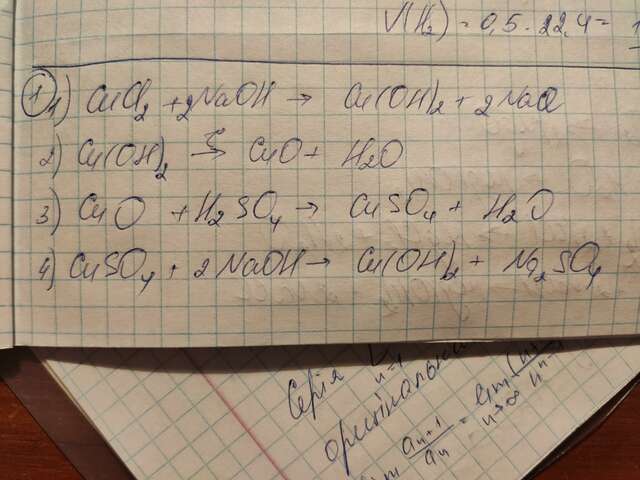 V(H₂) = 0,5 · 22,4 = 1
1 1) CuCl₂ + 2NaOH → Cu(OH)₂ + 2NaCl
2) Cu(OH)₂ →t CuO + H₂O
3) CuO + H₂SO₄ → CuSO₄ + H₂O
4) CuSO₄ + 2NaOH → Cu(OH)₂ + Na₂SO₄
Серія
n=1
оригінальна
aₙ₊₁/aₙ = lim n→∞